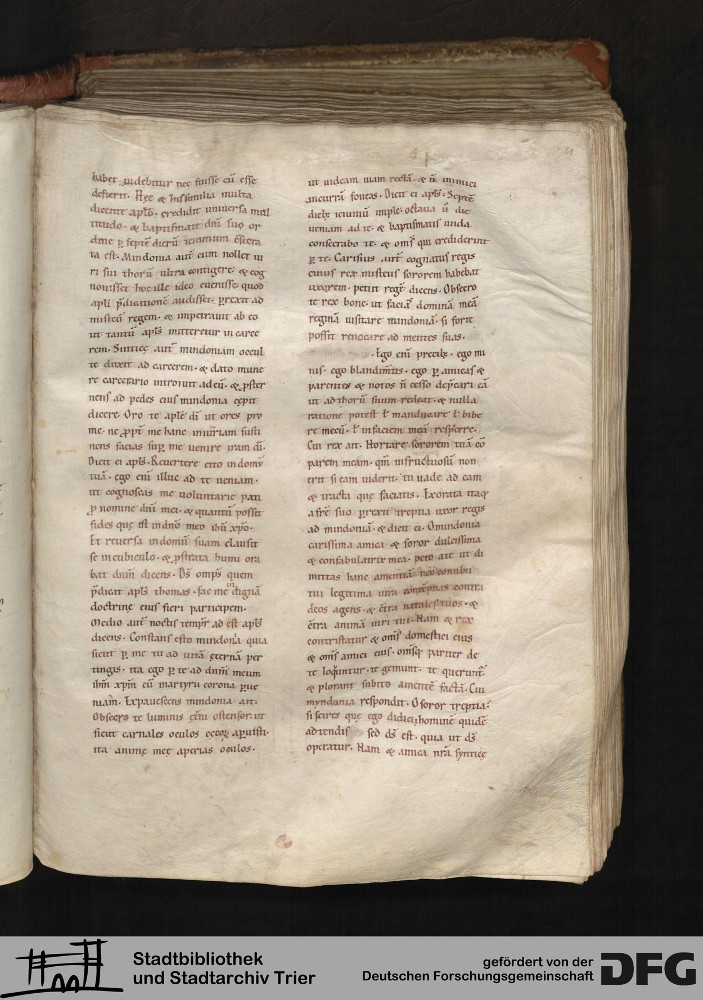 habet, uidebitur nec fuisse cū esse
desierit. Hęc & his similia multa
dicente apl̄o, credidit uniuersa mul
titudo. & baptismate dn̄i suo or
dine p̱ septē dierū ieiunium
ta est. Mindonia aut̄ cum nollet ui
ri sui thorū ultra contigere, & cog
nouisset hoc ille ideo euenisse quod
apli p̄dicationē audisset, p̱rexit ad
misteū regem. & impetrauit ab eo
ut tantū apl̄s mitteretur in carce
rem. Sintice aut̄ mindoniam occul
te duxit ad carcerem. & dato mune
re carcerario introiuit ad eū. & p̱ster
nens ad pedes eius mindonia cępit
dicere. Oro te aplē di ut ores pro
me. ne p̱pt̄ me hanc iniuriam susti
nens facias sup̱ me uenire iram di.
Dicit ei apl̄s. Reuertere cito in domū
tuā. ego eni illuc ad te ueniam.
ut cognoscas me uoluntarie pati
p̱ nomine dn̄i mei. & quantū possit
fides quę est in dn̄o meo ihū xp̄o.
Et reuersa in domū suam clausit
se in cubiculo. & p̱strata humi ora
bat dn̄m dicens. D̄s omp̄s quem
p̄dicat apl̄s thomas. fac me indignā
doctrinę eius fieri participem.
Medio aut̄ noctis tempr̄ adest apl̄s
dicens. Constans esto mindonia quia
sicut p̱ me tu ad uitā ęternā per
tingis. ita ego p̱ te ad dn̄m meum
ihm̄ xp̄m cū martyrii corona p̱ue
niam. Expauescens mindonia ait.
Obsecro te luminis ostensor. ut
sicut carnales oculos ap̱uisti.
ita animę męę aperias oculos.
ut uideam uiam rectā. & ñ inimici
incurrā foueas. Dicit ei apl̄s. Septē
dieb; ieiuniū imple. octaua ū die
ueniam ad te. & baptismatis unda
consecrabo te. & om̄s qui crediderunt
p̱ te. Carisius aut̄ cognatus regis
cuius rex misteus sororem habebat
uxorem. petiit regē dicens. Obsecro
te rex bone, ut faciā dominā meā
reginā uisitare mindoniā. si forte
possit reuocare ad mentes suas.
Ego eni precib; ego mi
nis. ego blandim̄tis. ego p̱ amicas &
parentes & notos ñ cesso dep̄cari eā
ut ad thorū suum redeat. & nulla
ratione potest ł manducare ł bibe
re mecū. ł in faciem meā resp̱cere.
Cui rex ait. Hortare sororem tuā cō
parem meam. qm̄ infructuosū non
erit si eam uiderit. tu uade ad eam
& tracta que faciatis. Exorata itaq;
a fr̄e suo p̱rexit treptia uxor regis
ad mindoniā. & dicit ei. O mindonia
carissima amica & soror dulcissima
& confabulatrix mea. peto a te ut di
mittas hanc amentiā nec conubii
tui legitima iura contēpnas contra
deos agens. & c̄tra natales tuos. &
c̄tra animā uiri tui. Nam & rex
contristatur & om̄s domestici eius
& om̄s amici eius. om̄sq; pariter de
te loqūntur. te gemunt. te querunt̄
& plorant subito amentē factā. Cui
myndonia respondit. O soror treptia
si scires que ego didici, hominē quidē
adtendis sed d̄s est. quia ut d̄s
operatur. Nam & amica nr̄a synticę
Stadtbibliothek
und Stadtarchiv Trier
gefördert von der
Deutschen Forschungsgemeinschaft
DFG